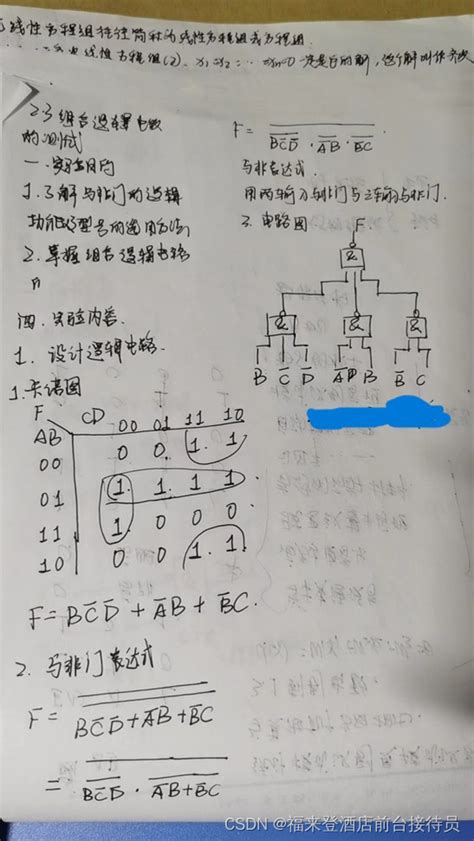 线性方程组往往简称为线性方程组或方程组.
线性方程组(2), x₁=x₂=…xn=0一定是它的解, 这个解叫作
2.3 组合逻辑电路
的测试
一. 实验目的
1. 了解与非门的逻辑
功能及型号的选用方法
2. 掌握组合逻辑电路
四. 实验内容.
1. 设计逻辑电路.
1. 卡诺图
F CD 00 01 11 10
AB
00 0 0 1 1
01 1 1 1 1
11 1 0 0 0
10 0 0 1 1
F = BC̅D̅ + A̅B + B̅C.
2. 与非门表达式
F =
BC̅D̅ + A̅B + B̅C
=
BC̅D̅ · A̅B + B̅C
F =
BC̅D̅ · A̅B · B̅C
与非表达式.
用两输入与非门与三输入与非门.
3. 电路图
F
&
& & &
B C̅ D̅ A̅ B B̅ C
CSDN @福来登酒店前台接待员